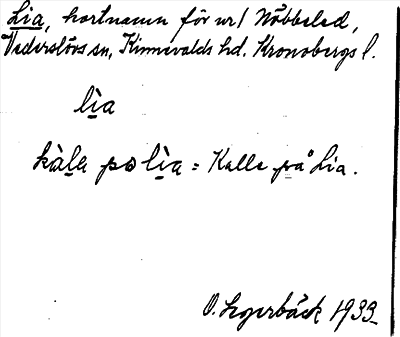 Lia, kortnamn för nr 1 Nöbbeled,
Vederslövs sn, Kinnevalds hd. Kronobergs l.
lìa
kàla po lìa = Kalle på Lia.
O. Lagerbäck 1933